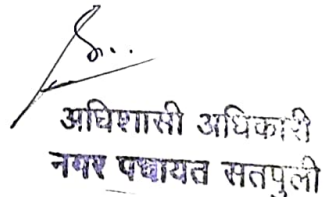 अधिशासी अधिकारी
नगर पंचायत सतपुली